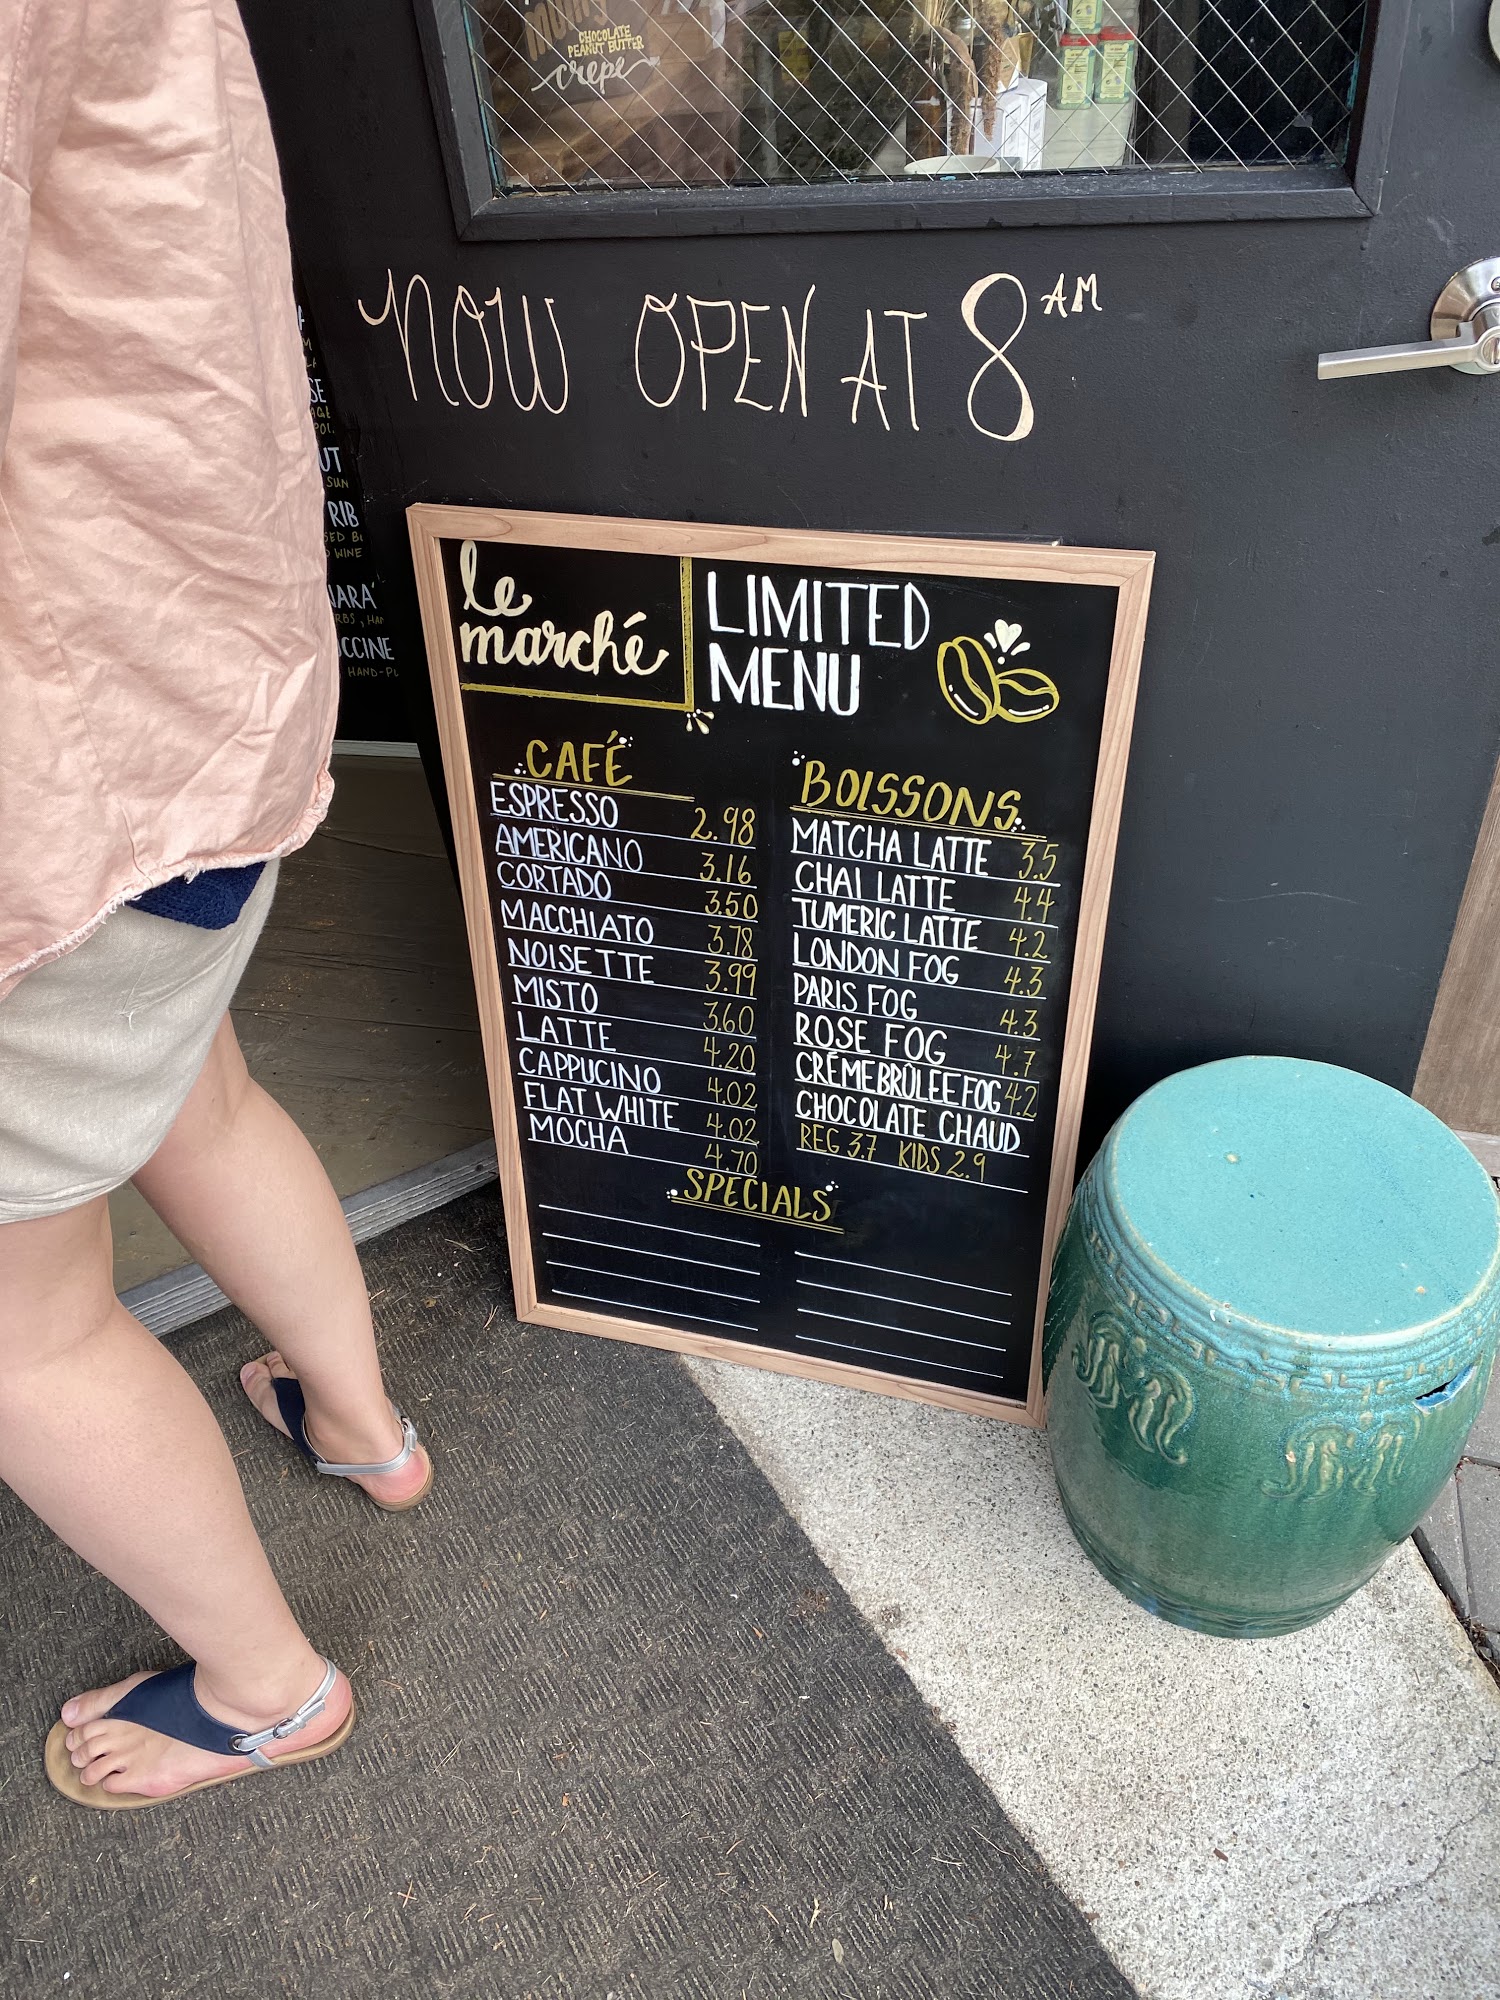 CHOCOLATE
PEANUT BUTTER
crepe
NOW OPEN AT 8 AM
SE
UT
SUN
RIB
WINE
CCINE
le
marché
LIMITED
MENU
CAFÉ
ESPRESSO 2.98
AMERICANO 3.16
CORTADO 3.50
MACCHIATO 3.78
NOISETTE 3.99
MISTO 3.60
LATTE 4.20
CAPPUCINO 4.02
FLAT WHITE 4.02
MOCHA 4.70
BOISSONS
MATCHA LATTE 3.5
CHAI LATTE 4.4
TUMERIC LATTE 4.2
LONDON FOG 4.3
PARIS FOG 4.3
ROSE FOG 4.7
CRÉME BRÛLEE FOG 4.2
CHOCOLATE CHAUD
REG 3.7 KIDS 2.9
SPECIALS